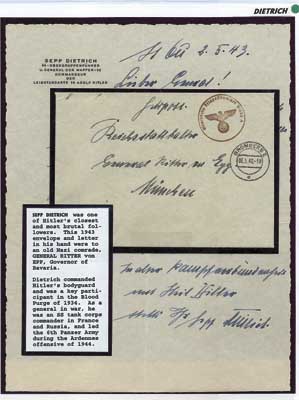 DIETRICH
SEPP DIETRICH
SS-OBERGRUPPENFÜHRER
U. GENERAL DER WAFFEN-SS
KOMMANDEUR
DER
LEIBSTANDARTE SS ADOLF HITLER
2.5.43.
Lieber General!
Feldpost
Reichsstatthalter
General Ritter von Epp
München
SEPP DIETRICH was one
of Hitler's closest
and most brutal fol-
lowers. This 1943
envelope and letter
in his hand were to
an old Nazi comrade,
GENERAL RITTER von
EPP, Governor of
Bavaria.
Dietrich commanded
Hitler's bodyguard
and was a key parti-
cipant in the Blood
Purge of 1934. As a
general in war, he
was an SS tank corps
commander in France
and Russia, and led
the 6th Panzer Army
during the Ardennes
offensive of 1944.
In alter
mit Heil Hitler
Sepp Dietrich